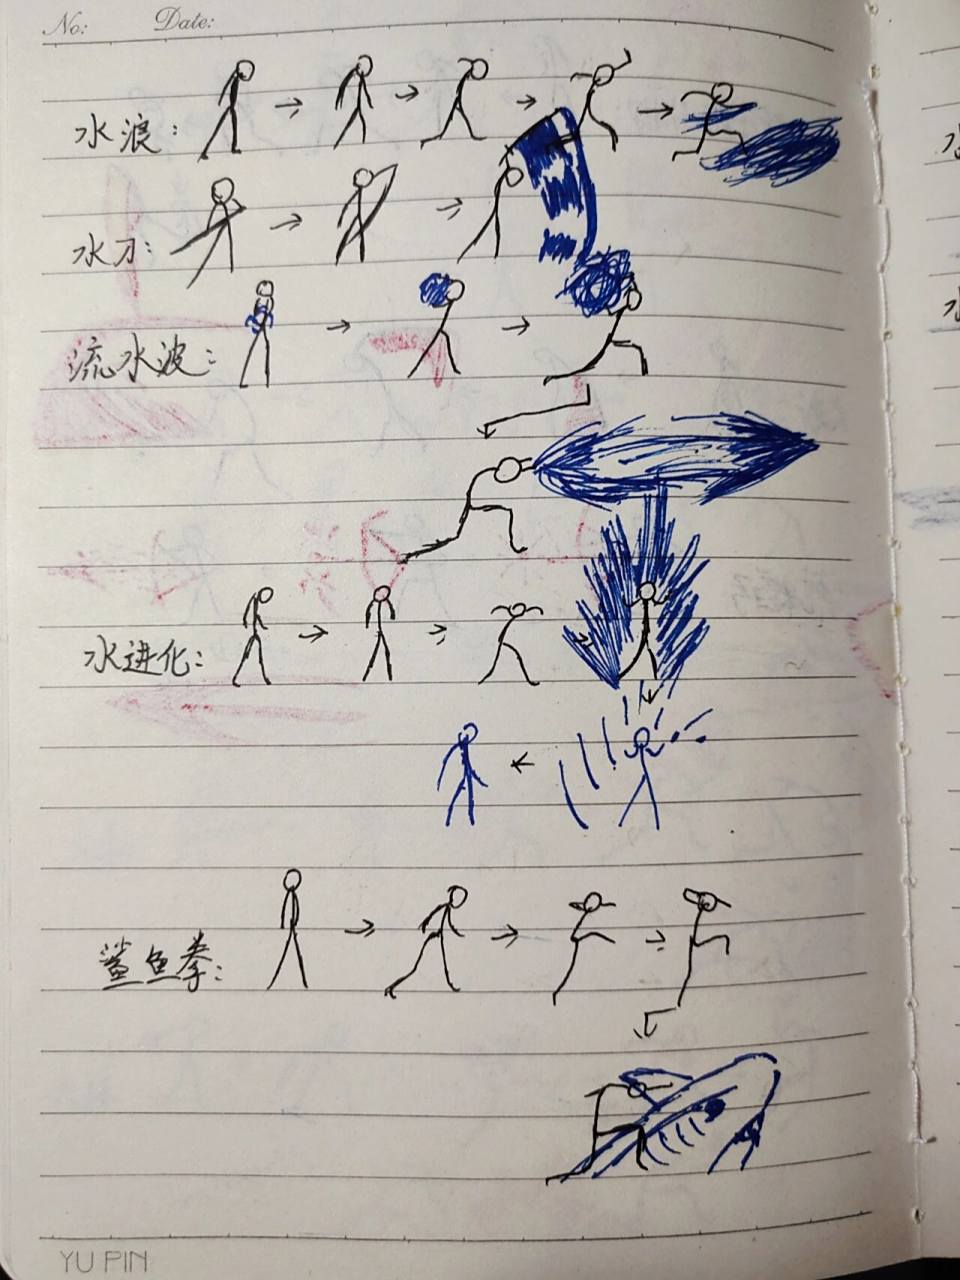 No: Date:
水浪:
水刀:
流水波:
水进化:
鲨鱼拳:
YU PIN